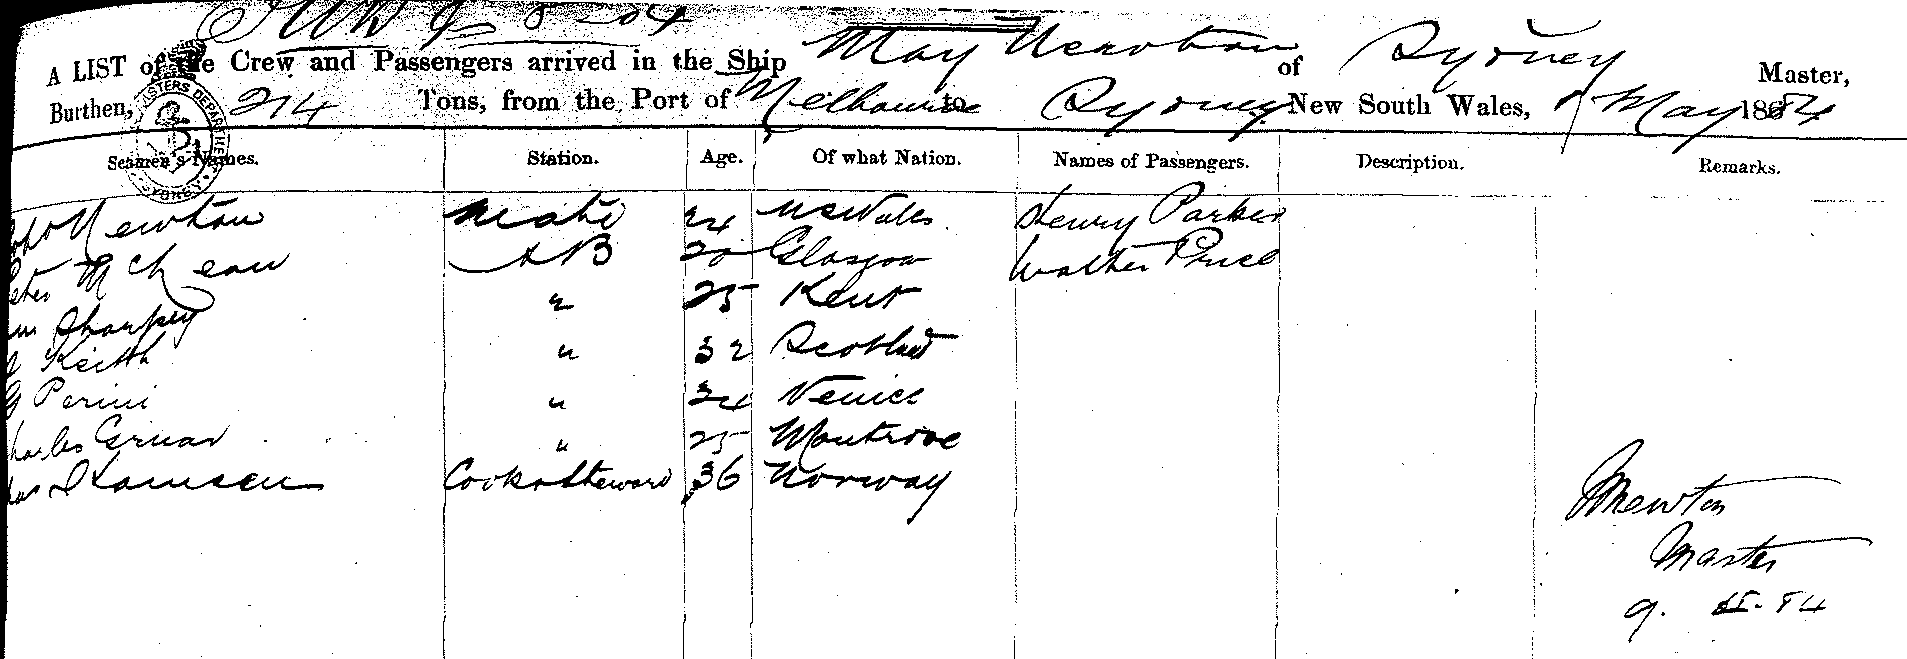 A LIST of the Crew and Passengers arrived in the Ship May Newton of Sydney Master,
Burthen, 214 Tons, from the Port of Melbourne to Sydney New South Wales, May 1884
Seamen's Names. Station. Age. Of what Nation. Names of Passengers. Description. Remarks.
Newton Mate 24 NSWales Henry Parker
McKean AB 20 Glasgow Walter Price
Sharpey " 25 Kent
Keith " 32 Scotland
G Perini " 24 Venice
harles Gruar " 25 Montrose
Cook & Steward 36 Norway
Newton
Master
9. 5-84